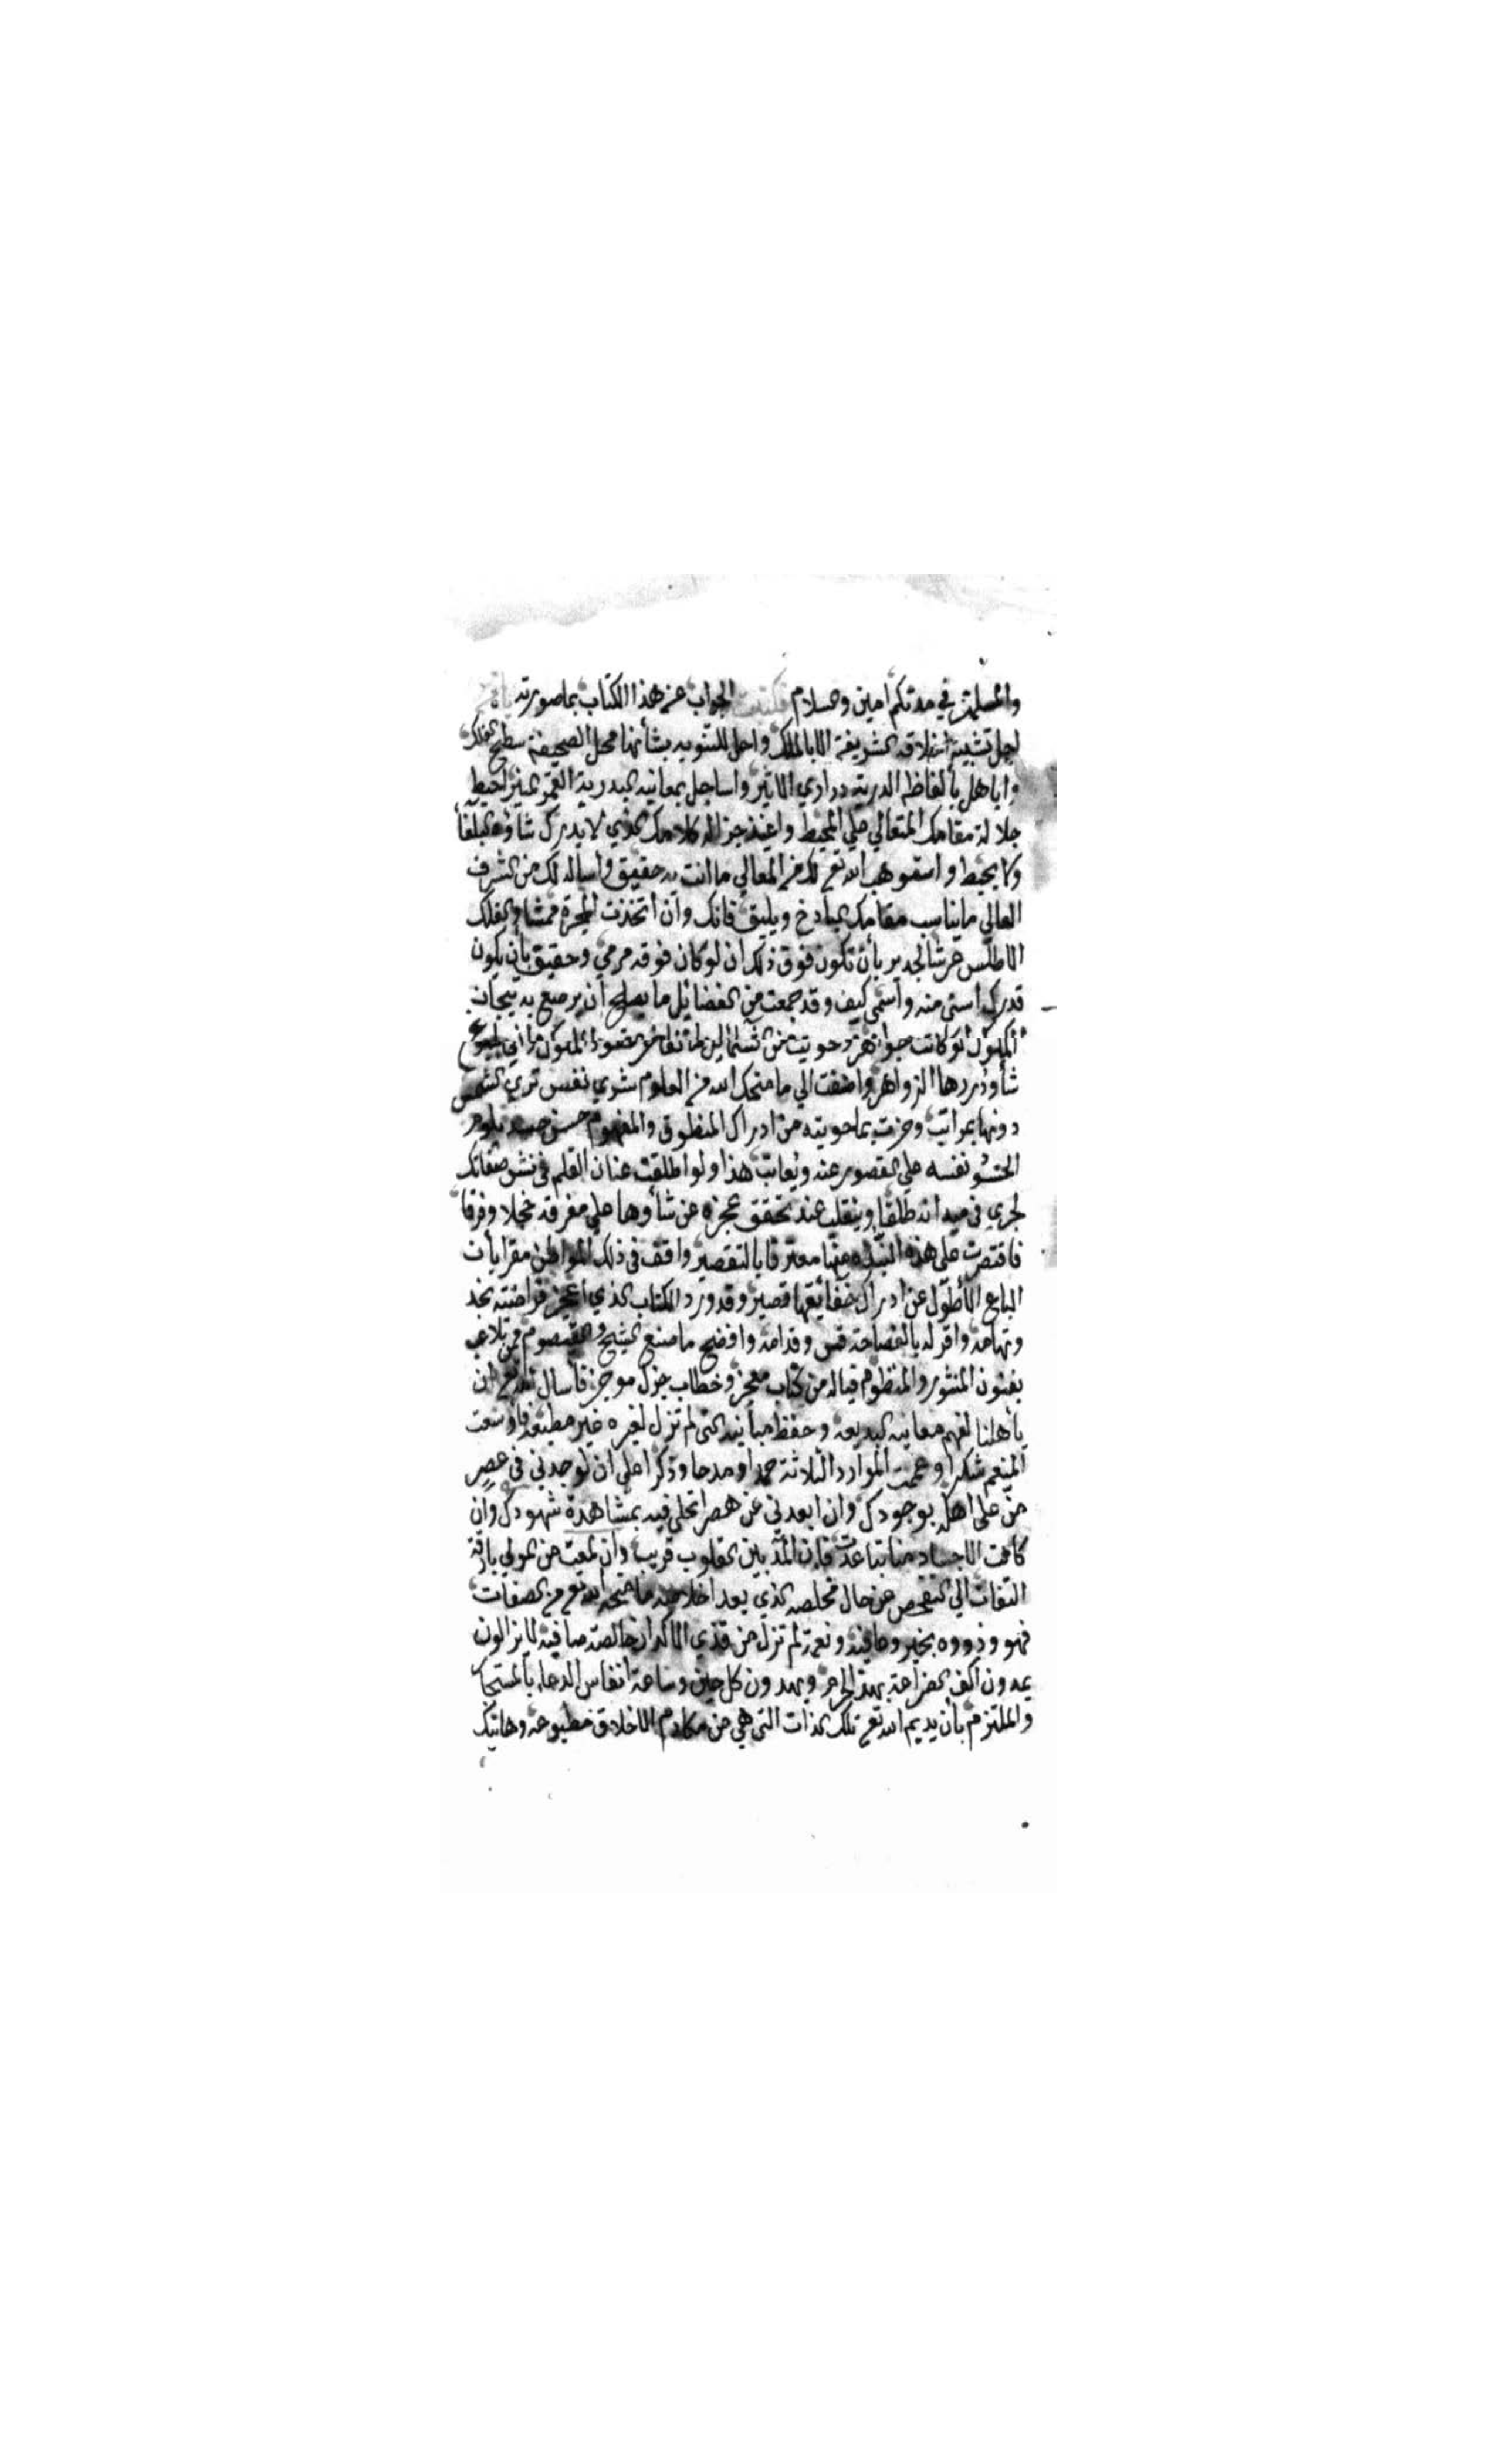 والمسلمين في مدتكم امين والسلام فكتبت الجواب عن هذا الكتاب بما صورته
لجل تشبيه اخلاقه الشريفة الا بالملك واحل للتنويه بشأنها محل الصحيفة سطح الفلك
واباهل بألفاظه الدرية دراري الاثير واساجل بمعانيه البدرية القمر المنير احيط
جلالة مقامك المتعالي علي المحيط واعيذ جزالة كلامك الذي لا يدرك شأوه البلغا
ولا يحيط واستوهب الله تع لك من المعالي ما انت به حقيق واساله لك من الشرف
العالي ما يناسب مقامك الباذخ ويليق فانك وان اتخذت المجرة ممشا والفلك
الاطلس عرشا لجدير بأن تكون فوق ذلك ان لو كان فوقه مرمي وحقيق بأن يكون
قدرك اسنى منه واسمى كيف وقد جمعت من الفضائل ما يصلح أن يرصع به تيجان
الملوك لو كانت جواهر وحويت من
شأو دررها الزواهر واضفت الي ما منحك الله من العلوم شري نفس تري الشمس
دونها بمراتب وحزت بما حويته من ادراك المنطوق والمفهوم حسن
نفسه علي القصور عنه ويعاتب هذا ولو اطلقت عنان القلم في نشر صفاتك
لجري في ميدانه طلقا وينقلب عند تحقق عجزه عن شأوها علي مفرقه خجلا وفرقا
فاقتصرت علي هذه النبذه منها معترفا بالتقصير واقف في ذلك المواطن مقرا بأن
الباع الأطول عن ادراك حقائقها قصير وقد ورد الكتاب الذي اعجز نجد
وتهامة واقر له بالفصاحة قس وقدامة وافضح ما صنع الشيح والقيصوم من تلاعب
بفنون المنثور والمنظوم فياله من كتاب معجز وخطاب جزل موجز فأسال الله تع ان
يأهلنا لفهم معانيه البديعة وحفظ مبانيه التي لم تزل لغيره غير مطيعة
المنعم شكرا وعممت الموارد الثلاثة حمدا ومدحا وذكرا علي ان اوجدني في عصر
من علي اهله بوجودك وان ابعدني عن مصر اتحلي فيه بمشاهدة شهودك وان
كانت الاجساد منا تباعدت فان المد بين القلوب قريب وان لمعت من المولي بارقة
التفات الي التفحص عن حال مخلصه الذي يعد اخلاصه ما منحه الله تع من الصفات
فهو وذووه بخير وعافية ونعمة لم تزل من قذي الاكدار خالصة صافية لا يزالون
يمدون اكف الضراعة بهذا الحرم ويهدون كل حين وساعة انفاس الدعاء بالمستجار
والملتزم بأن يديم الله تع تلك الذات التي هي من مكارم الاخلاق مطبوعة وهاتيك